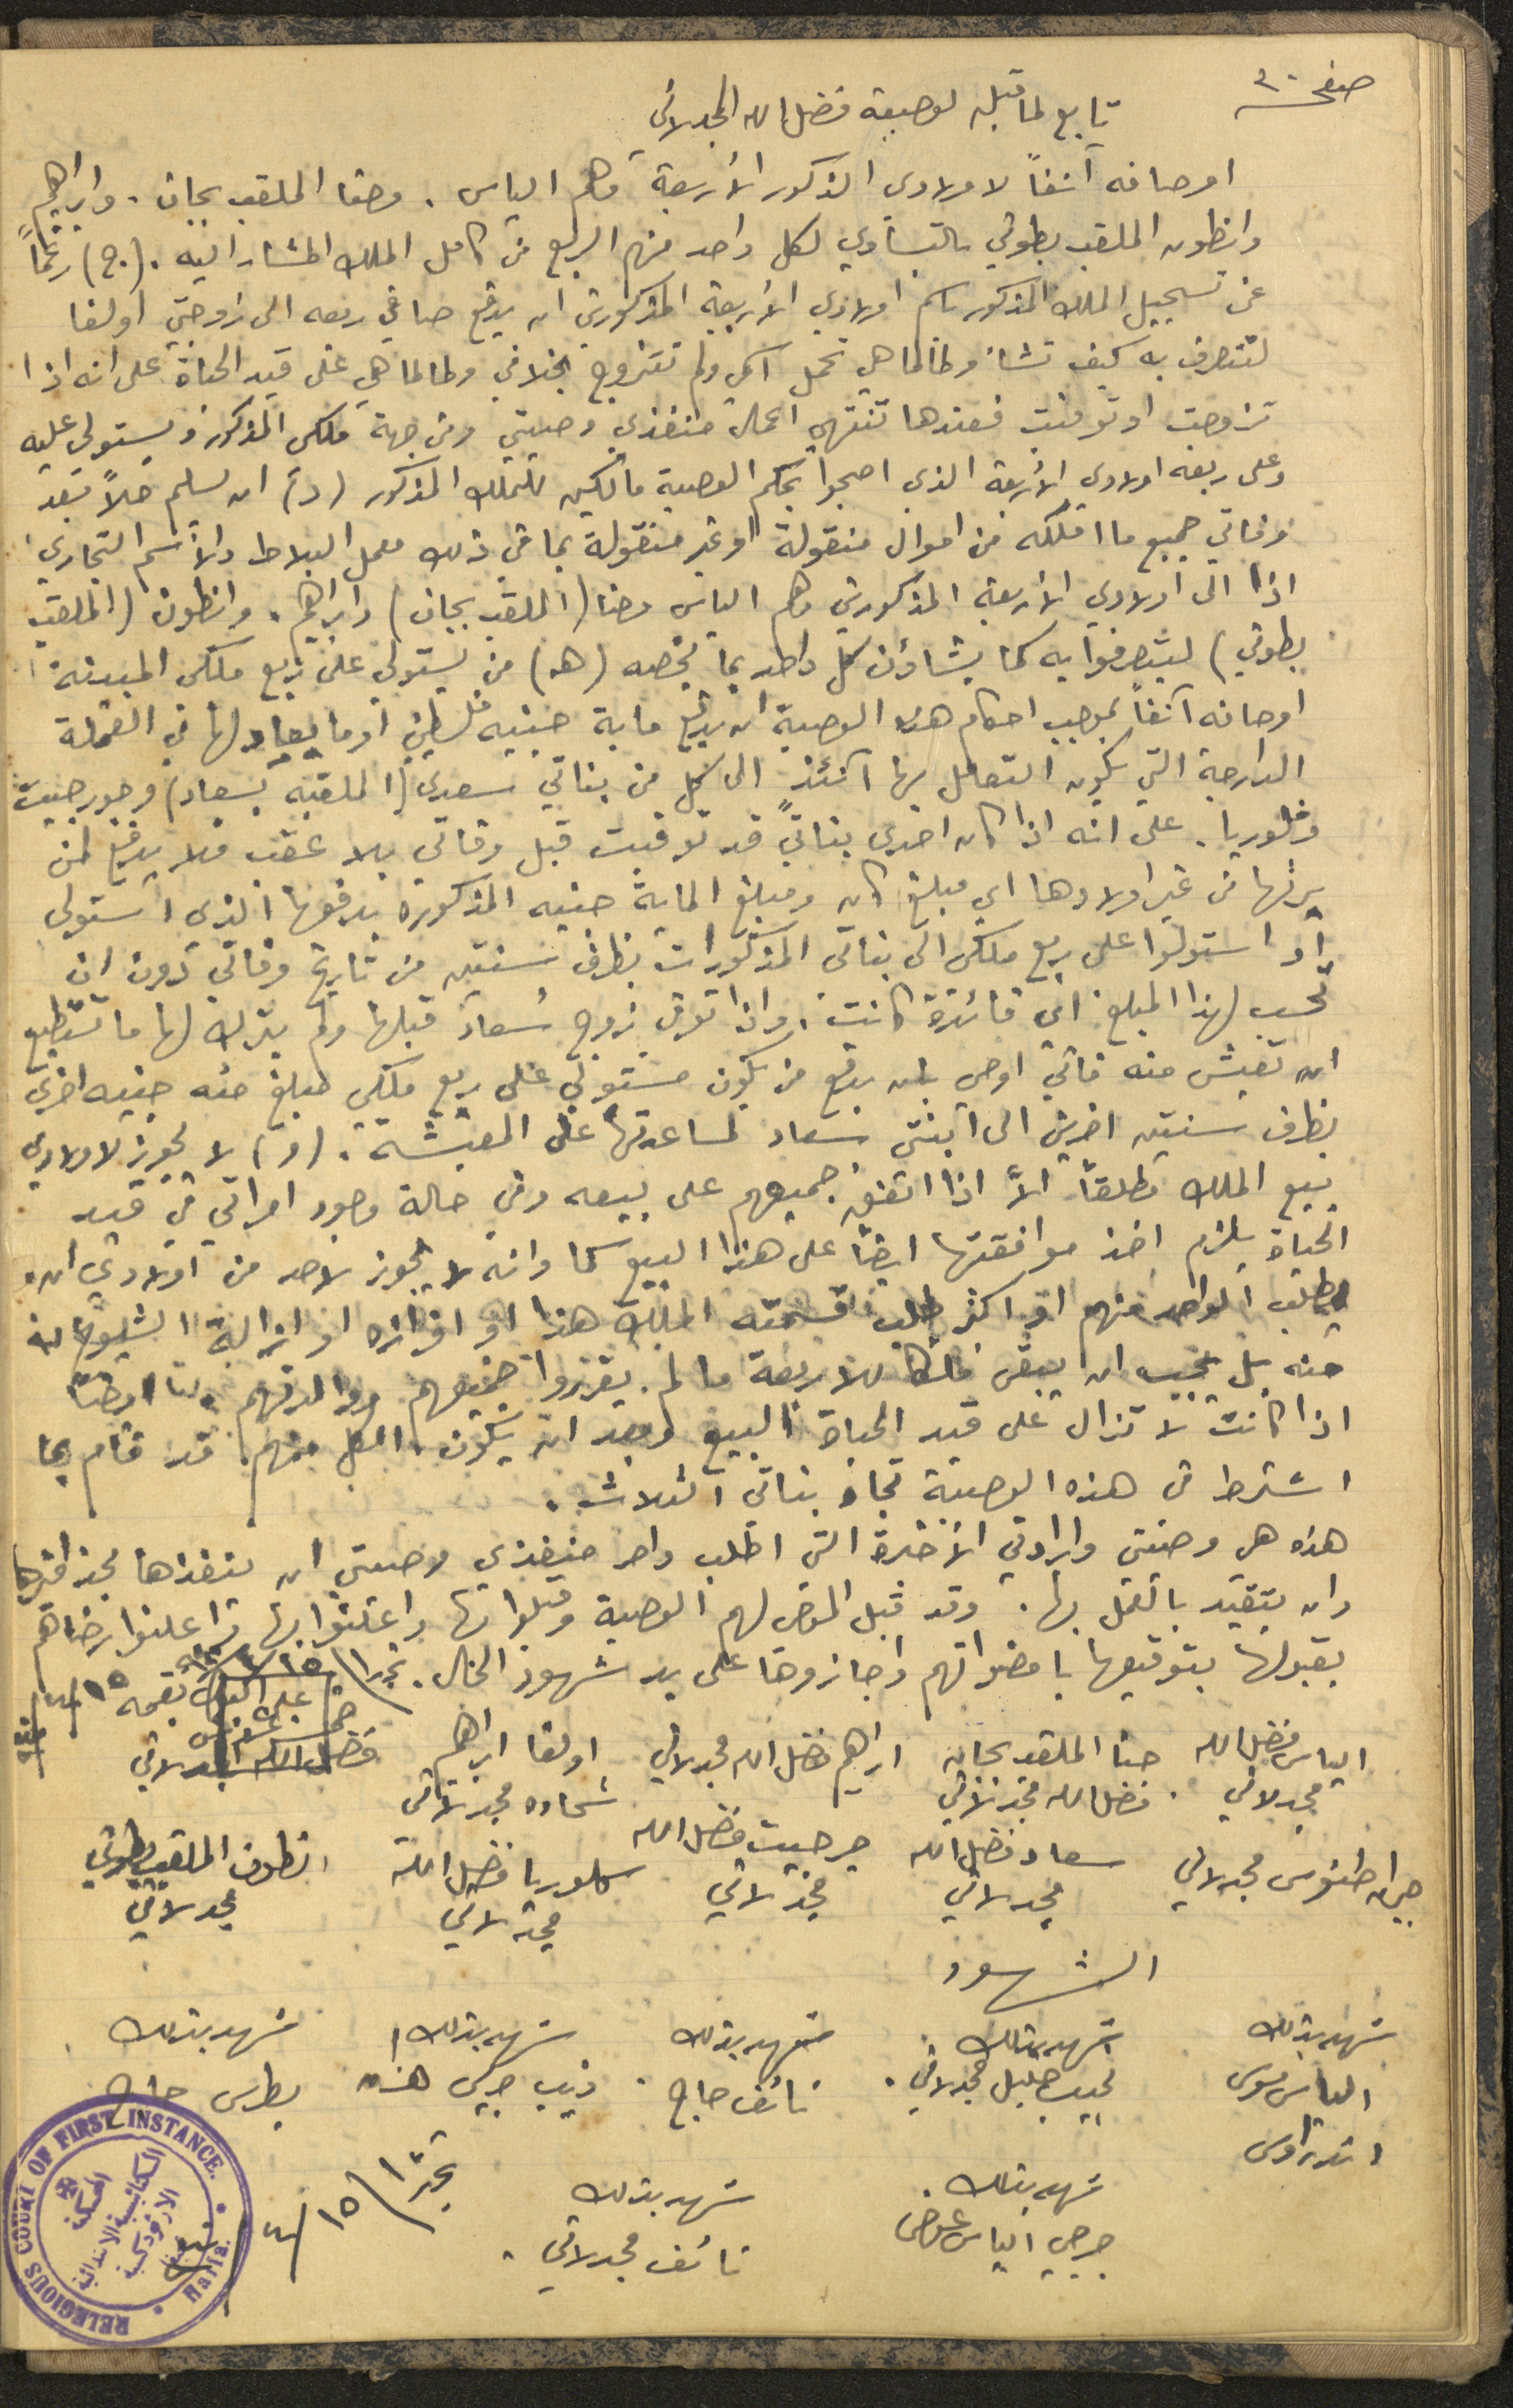 صفحة ٣٠
تابع لما قبله لوصية فضل الله المجدلاني
اوصافه آنفاً لاولادي الذكور الأربعة وهم الياس . وحنا الملقب بجان . وابراهيم
وانطون الملقب بطوني بالتساوي لكل واحد منهم الربع من كامل الملك المشار اليه . (ج) رغماً
عن تسجيل الملك المذكور باسم اولادي الأربعة المذكورين ان يدفع صافي ريعه الى زوجتي اولغا
لتتصرف به كيف تشأ وطالما هي تحمل اسمي ولم تتزوج بخلافي وطالما هي على قيد الحياة على انه اذا
تزوجت او توفيت فعندها تنتهي اعمال منفذي وصيتي ومن جهة ملكي المذكور ويستولي عليه
وعلى ريعه اولادي الأربعة الذي اصبحوا بحكم الوصية مالكين للملك المذكور (د) ان يسلم حالاً بعد
وفاتي جميع ما املكه من اموال منقولة او غير منقولة بما في ذلك معمل البلاط والأسم التجاري
اذا الى اولادي الأربعة المذكورين وهم الياس وحنا (الملقب بجان) وابراهيم . وانطون (الملقب
بطوني) ليتصرفوا به كما يشاؤن كل واحد بما يخصه (هـ) من يستولي على ريع ملكي المبينة
اوصافه آنفاً بموجب احكام هذه الوصية ان يدفع ماية جنيه فلسطيني او ما يعادلها في العملة
الدارجة التي يكون التعامل بها آنئذٍ الى كل من بناتي سعدى (الملقبه بسعاد) وجورجيت
وغلوريا . على انه اذا كان احدى بناتي قد توفيت قبل وفاتي بلا عقب فلا يدفع لمن
يرثها من غير اولادها اي مبلغ كان ومبلغ الماية جنيه المذكورة يدفعها الذي استولى
او استولوا على ريع ملكي الى بناتي المذكورات بظرف سنتين من تاريخ وفاتي دون ان
تحسب لهذا المبلغ اي فائدة كانت . واذا توفي زوج سُعاد قبلها ولم يترك لها ما تستطيع
ان تعيش منه فاني اوصي بان يدفع من يكون مستولي على ريع ملكي مبلغ مئه جنيه اخرى
بظرف سنتين اخرين الى ابنتي سعاد لمساعدتها على المعيشة . (و) لا يجوز لاولادي
بيع الملك مطلقاً الاّ اذا اتفق جميعهم على بيعه وفي حالة وجود امراتي في قيد
الحياة يلزم اخذ موافقتها ايضاً على هذا البيع كما وانه لا يجوز لاحد من اولادي ان
يطلب الواحد منهم او اكثر طلب قسمته الملك هذا او افرازه او ازالة الشيوع
منه بل يجب ان يبقى ملكا للاربعة ما لم يقرروا جميعهم ووالدتهم ايضاً
اذا كانت لا تزال على قيد الحياة البيع وبعد ان يكون الكل منهم قد قام بما
اشترط في هذه الوصية تجاه بناتي الثلاث .
هذه هي وصيتي وارادتي الأخيرة التي اطلب وامر منفذي وصيتي ان ينفذها بحذافيرها
وان يتقيد بالعمل بها . وقد قبل الموصى لهم الوصية وقبلوا بها واعلنوا رضاهم
بقبولها بتوقيعها بامضواتهم واجازوها على يد شهود الحال . تحريراً ١٥/
الياس فضل الله مجدلاني
حنا الملقب بجان فضل الله مجدلاني
ابراهيم فضل الله مجدلاني
اولغا ابراهيم شحاده مجدلاني
فضل الله المجدلاني
جبران طنوس مجدلاني
سعاد فضل الله مجدلاني
جرجيت فضل الله مجدلاني
كلوريا فضل الله مجدلاني
انطون الملقب بطوني مجدلاني
الشهود
شهد بذلك الياس موسى اندراوس
اشهد بذلك نجيب خليل مجدلاني .
شهد بذلك نائف حاج .
شهد بذلك ذيب جرجي
شهد بذلك بطرس حاج
شهد بذلك جرجي الياس عوض
شهد بذلك نائف مجدلاني .
تحريراً ١٥/
RELEGIOUS COURT OF FIRST INSTANCE.
Haifa.
المحكمة
الكنائسية الابتدائية
الارثوذكسية